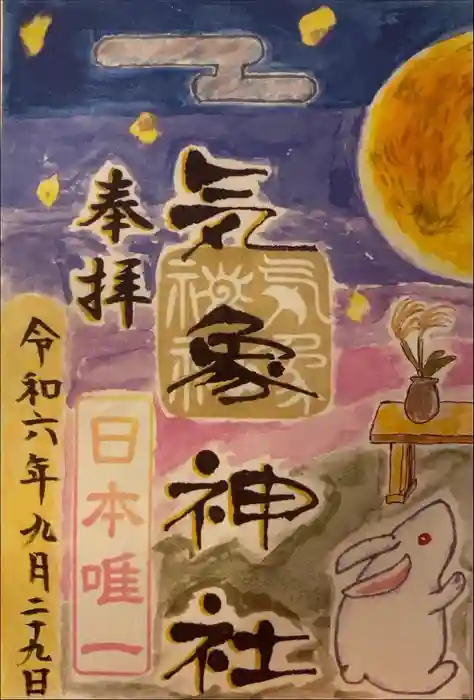 奉拝
気象神社
気象
神社
日本唯一
令和六年九月二十九日